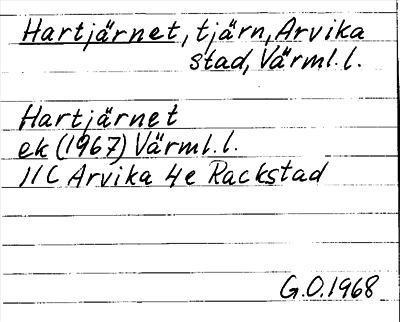 Hartjärnet, tjärn, Arvika
stad, Värml. l.
Hartjärnet
ek (1967) Värml. l.
11 C Arvika 4 e Rackstad
G.O. 1968